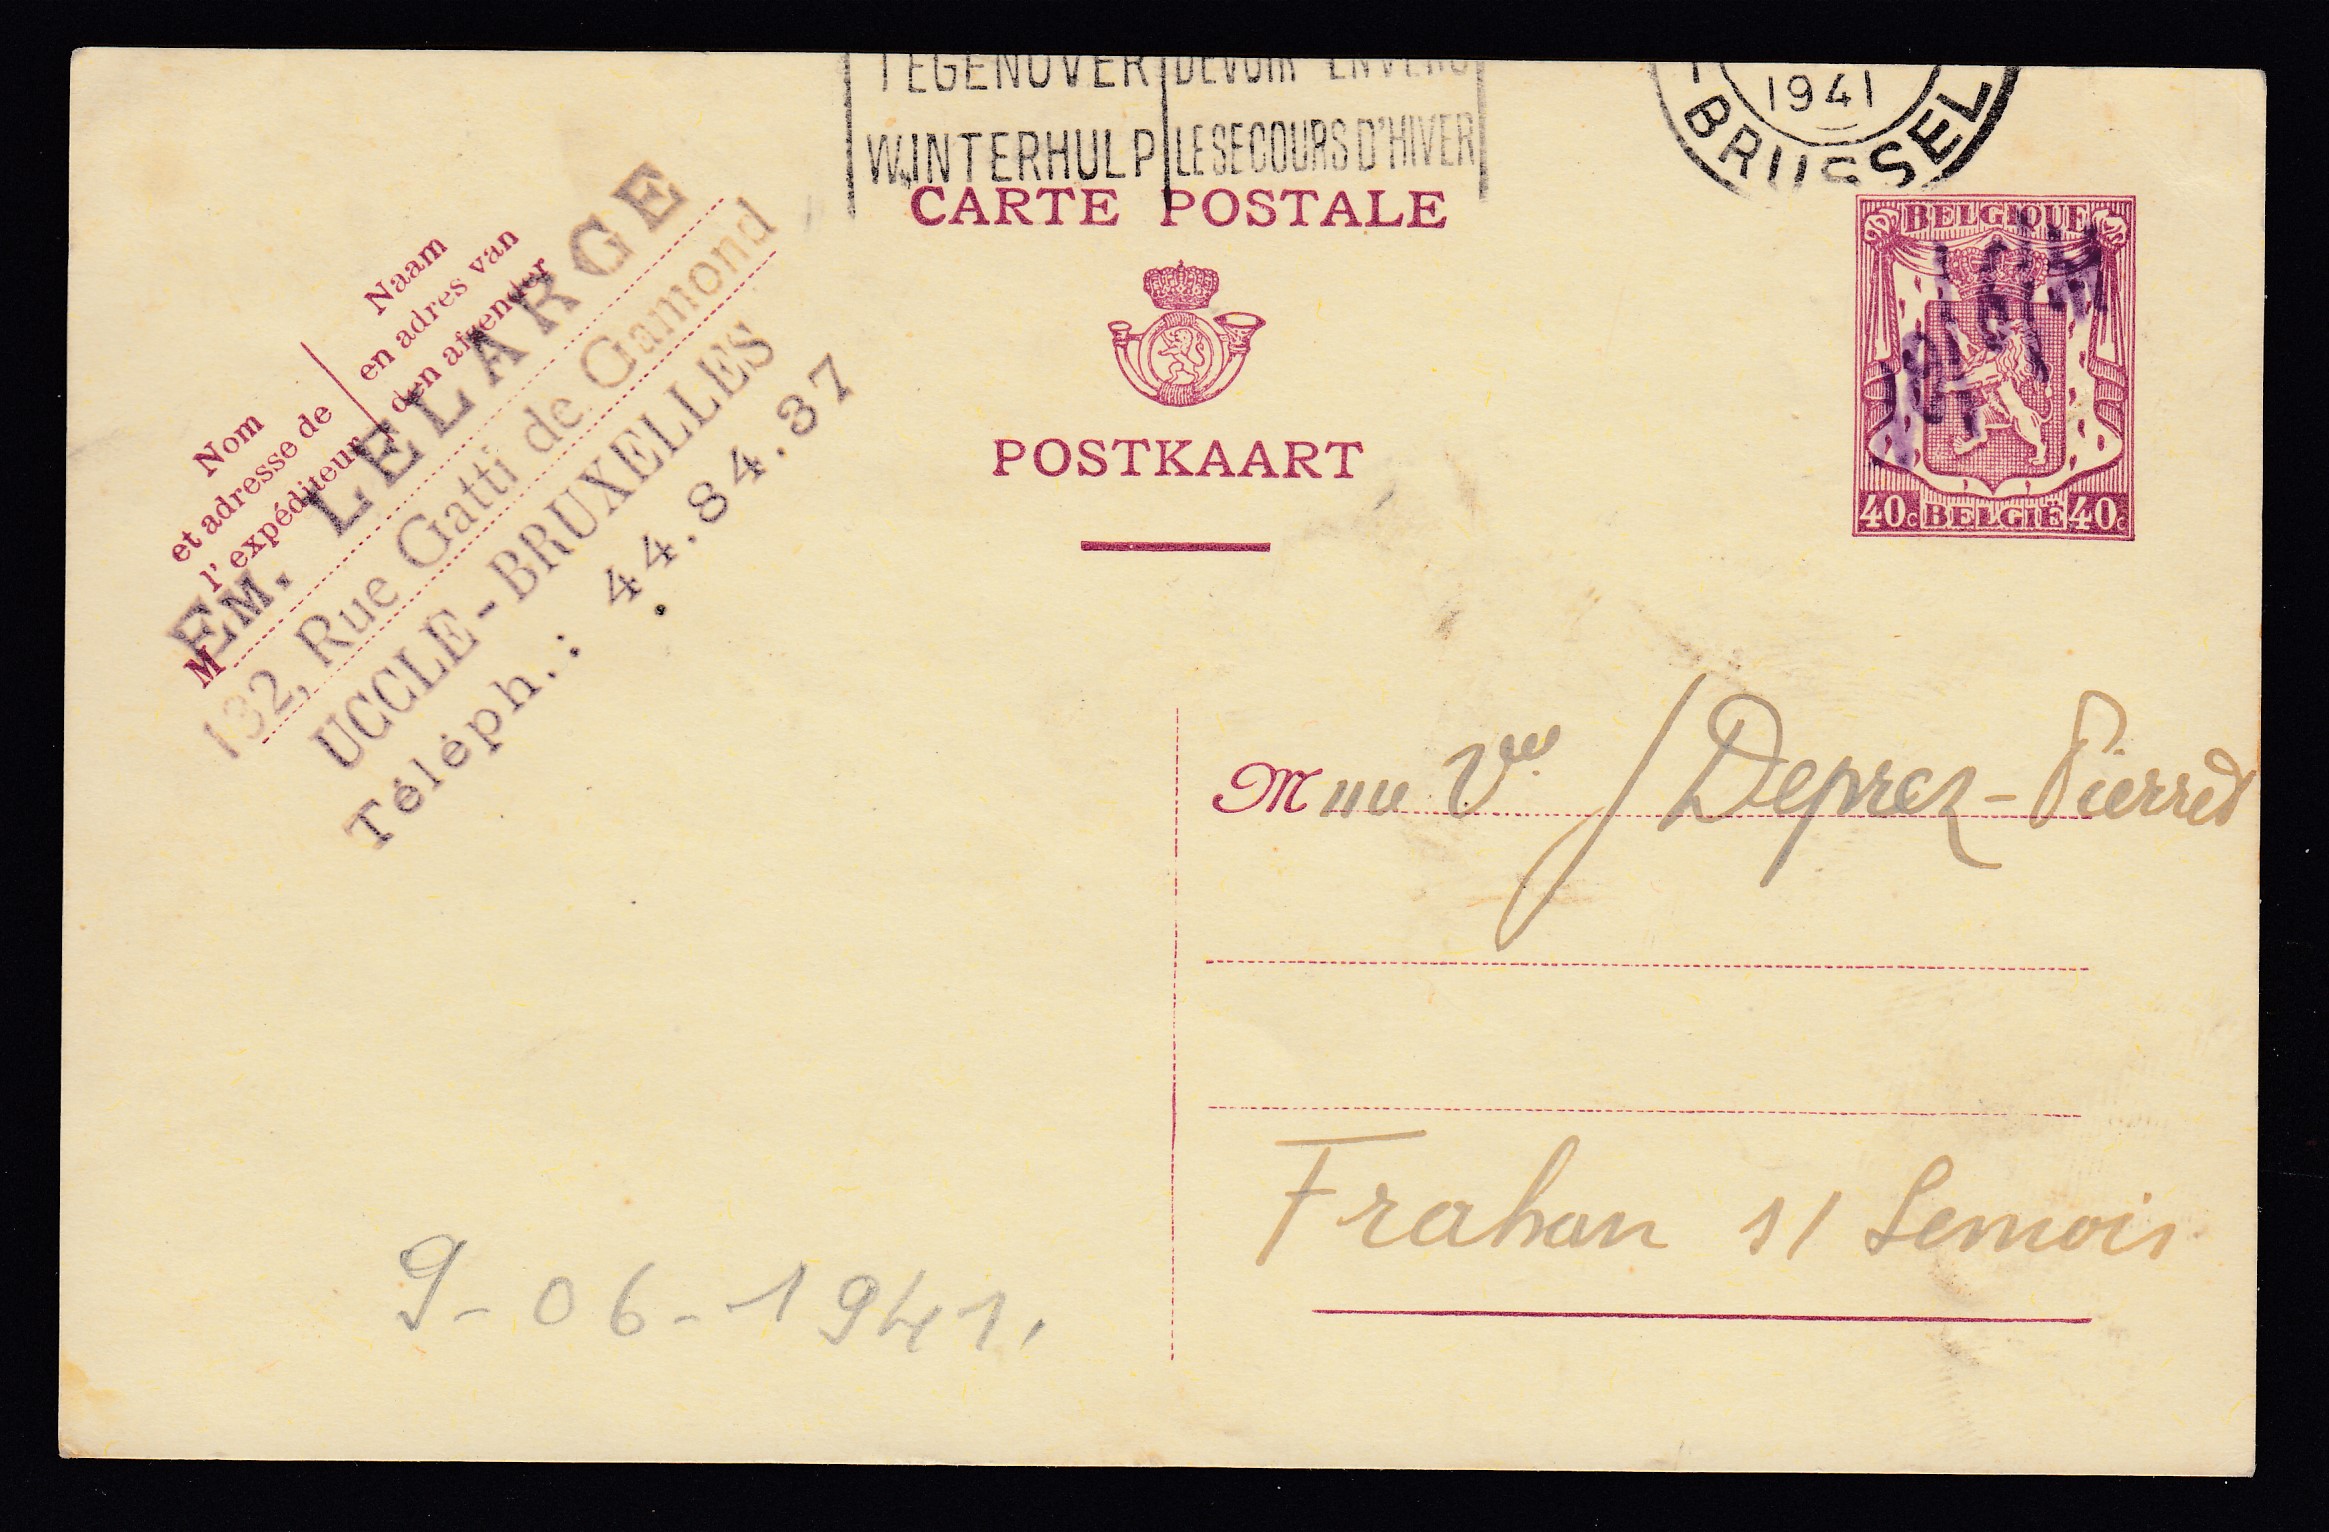 TEGENOVER DEVOIR ENVERS
WINTERHULP LE SECOURS D'HIVER
1941
-BRUSSEL
CARTE POSTALE
POSTKAART
BELGIQUE
40c BELGIË 40c
Nom
et adresse de
l'expéditeur
Naam
en adres van
den afzender
M
EM. LELARGE
132, Rue Gatti de Gamond
UCCLE-BRUXELLES
Téléph.: 44.84.37
Mme Vve Deprez-Pierret
Frahan s/ Semois
9-06-1941.